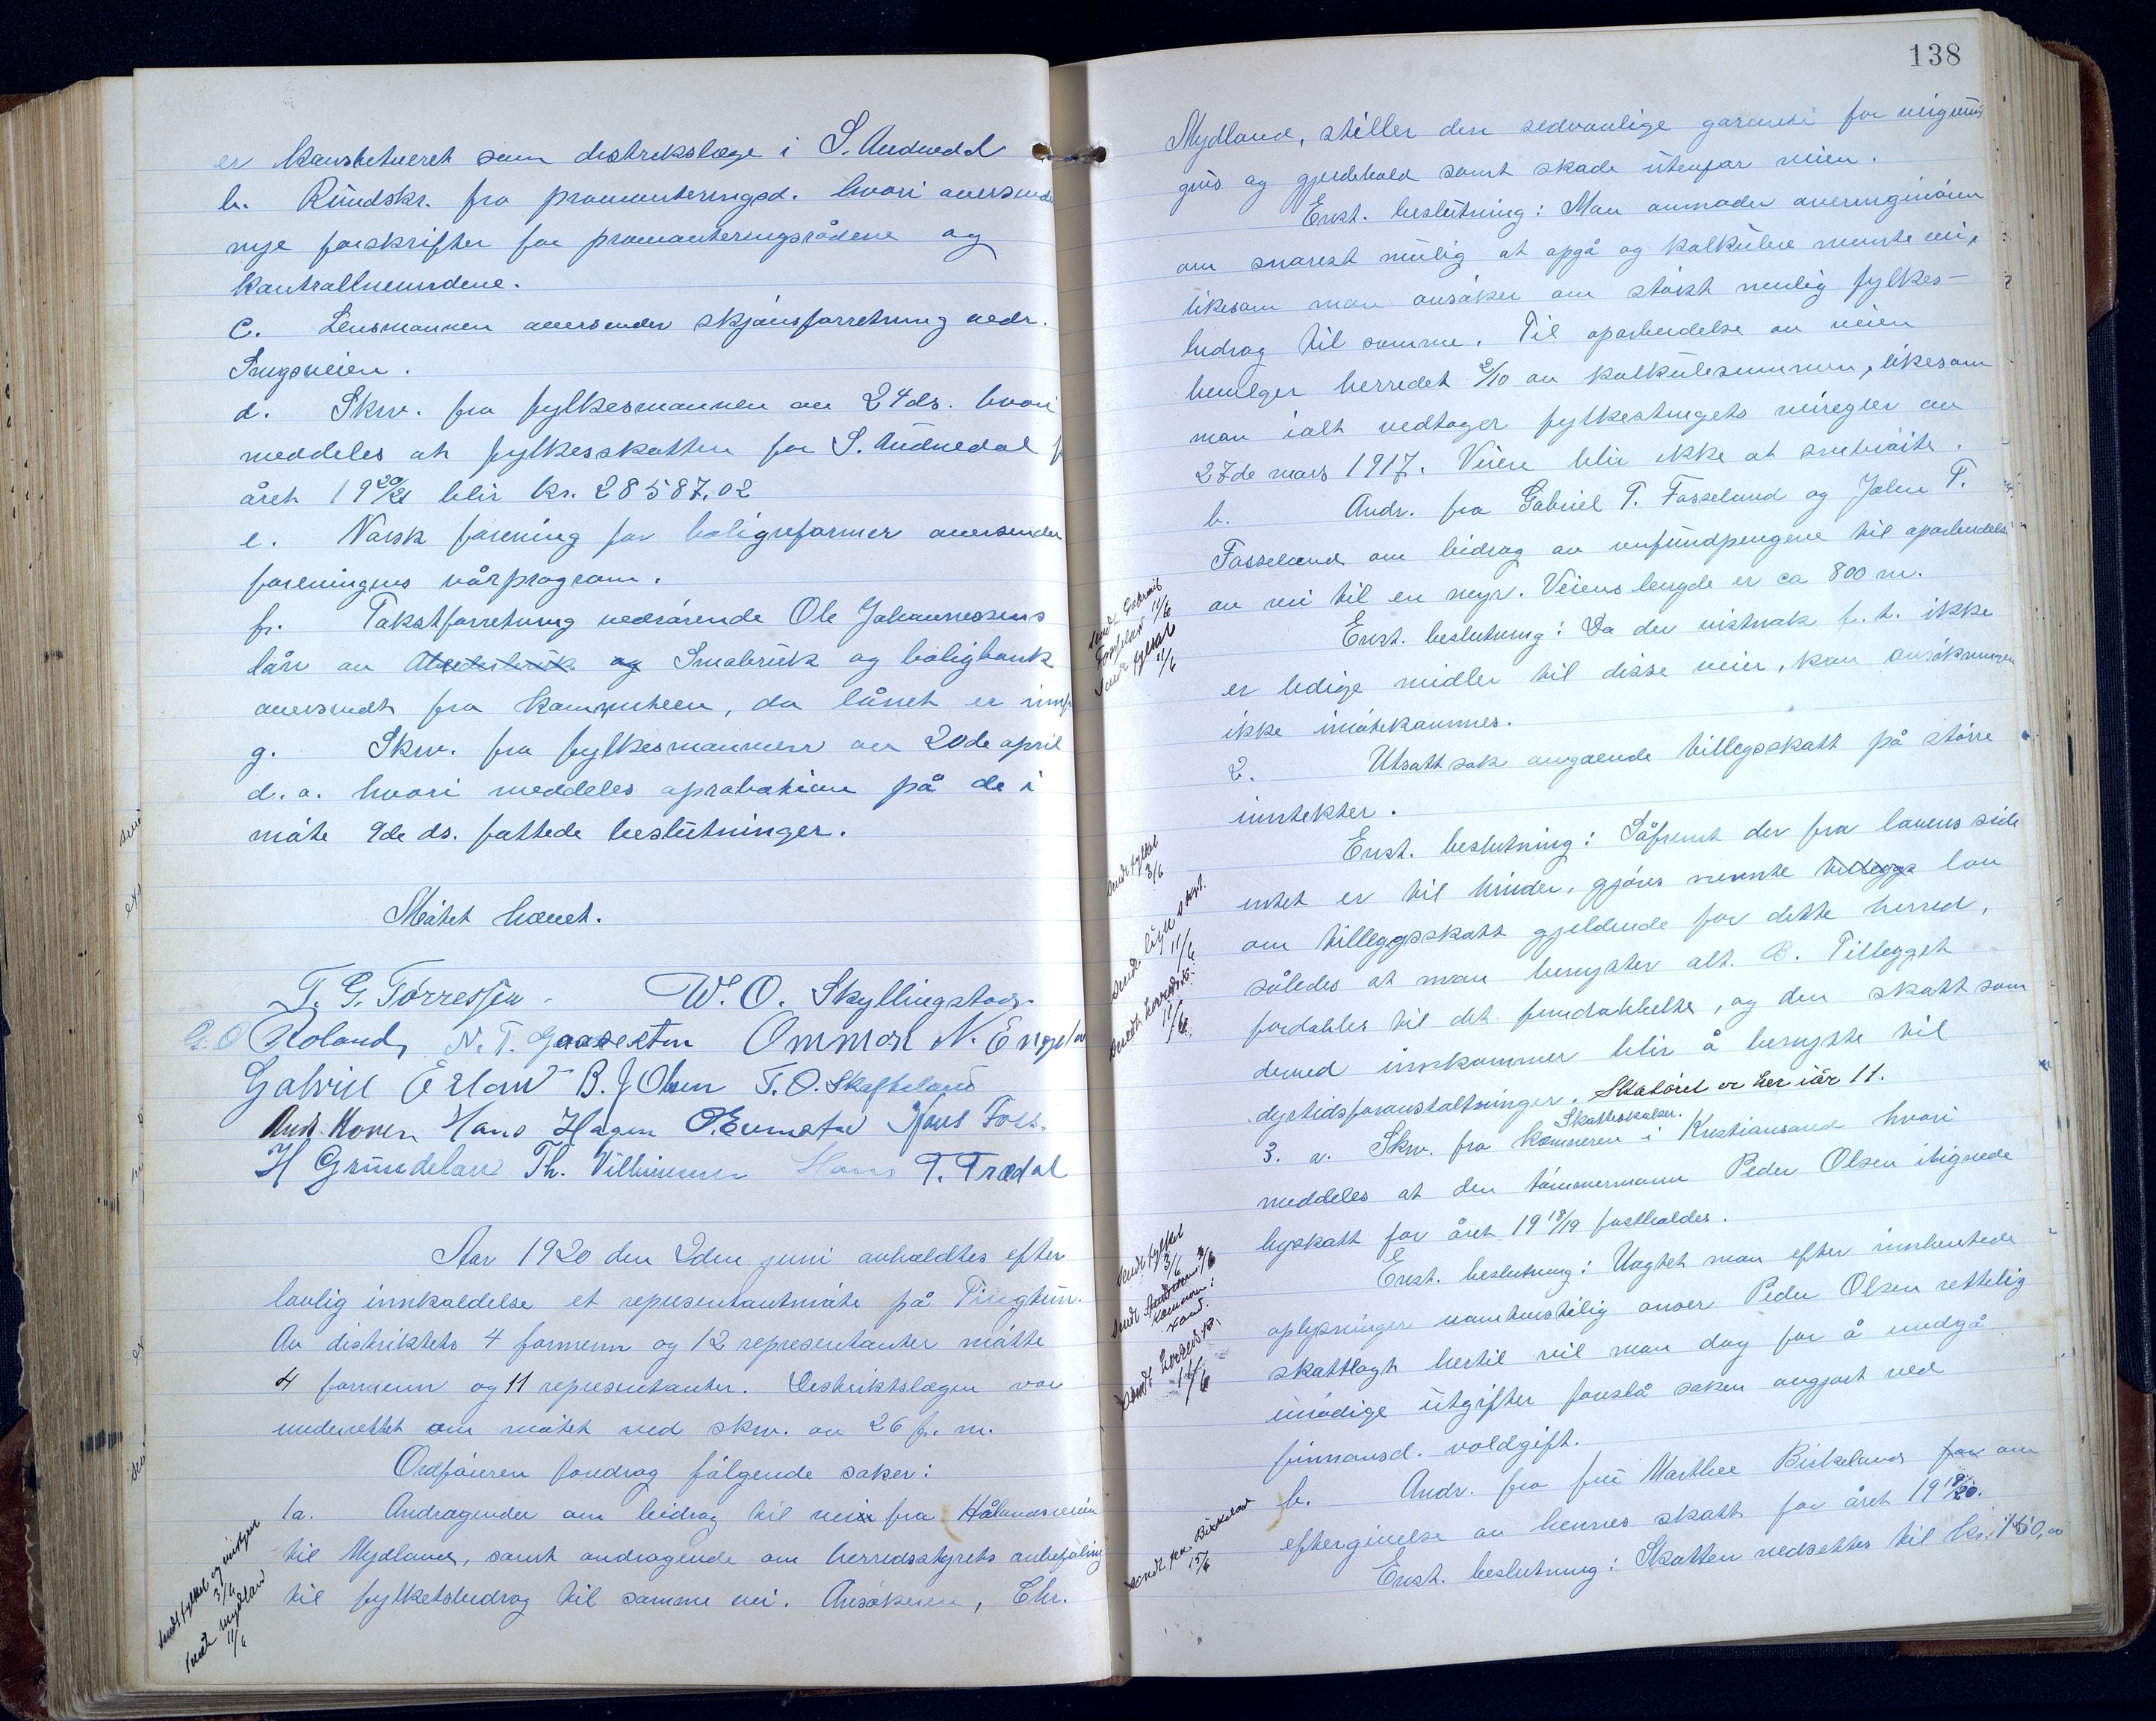 er konstitueret som distrikslæge i S. Audnedal
b. Rundskr. fra provianteringsd. hvori oversendes
nye forskrifter for provianteringsrådene og
kontrollnemndene.
c. Lensmannen oversender skjønsforretning vedr.
d. Skriv. fra fylkesmannen av 24 ds. hvori
meddeles at fylkesskatten for S. Audnedal f
året 1920/21 blir kr. 28587,02
e. Norsk forening for boligreformer oversender
foreningens vårprogram.
f. Takstforretning vedrørende Ole Johannessens
lån av og Småbruk og boligbank
oversendt fra kommiteen, da lånet er innfr
g. Skriv. fra fylkesmannen av 20de april
d. a. hvori meddeles aprobation på de i
møte 9de ds. fattede beslutninger.
Møtet hævet.
T. G. Tørressen W. O. Skyllingstad
G. O Roland N. T. Ommon N. Engeland
Gabriel B. J Olsen T. O. Skafteland
And. Hans Hagen Foss.
H Grundeland Th. Hans T. Trædal
Aar 1920 den 2den juni avholdtes efter
lovlig innkaldelse et representantmøte på Tingtun.
Av distriktets 4 formenn og 12 representanter møtte
4 formenn og 11 representanter. Distriktslægen var
underrettet om møtet ved skriv. av 26 f. m.
Ordføreren foredrog følgende saker:
1a. Andragender om bidrag til vei fra Hålandsveien
til Mydland, samt andragende om herredsstyrets anbefaling
til fylketsbidrag til samme vei. Ansøkeren, Chr.
Sendt fylket og
3/6
Sendt Mydland
11/6
138
Mydland, stiller den sedvanlige garanti for veigrund
grus og gjerdehold samt skade utenfor veien.
Enst. beslutning: Man anmoder overingeniøren
om snarest mulig at opgå og kalkulere nevnte vei,
likesom man ansøker om størst mulig fylkes-
bidrag til samme. Til oparbeidelse av veien
bevilger herredet 2/10 av kalkulesummen, likesom
man ialt vedtager fylkestingets veiregler av
27de mars 1917. Veien blir ikke at snebrøite.
b. Andr. fra Gabriel T. Fasseland og John T.
Fasseland om bidrag av veifundpengene til oparbeidelse
av vei til en myr. Veiens lengde er ca 800 m.
Enst. beslutning: Da der vistnok f. t. ikke
er ledige midler til disse veier, kan ansøkningen
ikke imøtekommes.
2. Utsatt sak angaende tillegsskatt på større
inntekter.
Enst. beslutning: Såfremt der fra lovens side
intet er til hinder, gjøres nevnte tillegs lov
om tilleggsskatt gjeldende for dette herred,
således at man benytter alt. B. Tillegget
fordobles til det firedobbelte, og den skatt som
derved innkommer blir å benytte til
dyrtidsforanstaltninger. Skatøret er her iår 11.
Skatteskalaer.
3. a. Skriv. fra kæmneren i Kristiansand hvori
meddeles at den tømmermann Peder Olsen ilignede
byskatt for året 1918/19 fastholdes.
Enst. beslutning: Uagtet man efter innhentede
oplysninger anser Peder Olsen rettelig
skattlagt hertil vil man dog for å undgå
unødige utgifter foreslå saken avgjort ved
finansd. voldgift.
b. Andr. fra fru Marthe Birkeland for om
eftergivelse av hennes skatt for året 1919/20.
Enst. beslutning: Skatten nedsettes til kr. 150,00
Sendt Gabriel
11/6
Sendt fylket
11/6
Sendt fylket
3/6
11/6
Sendt herredsk.
Sendt fylket
3/6
Sendt herredsk.
Sendt fru Birkeland
15/6